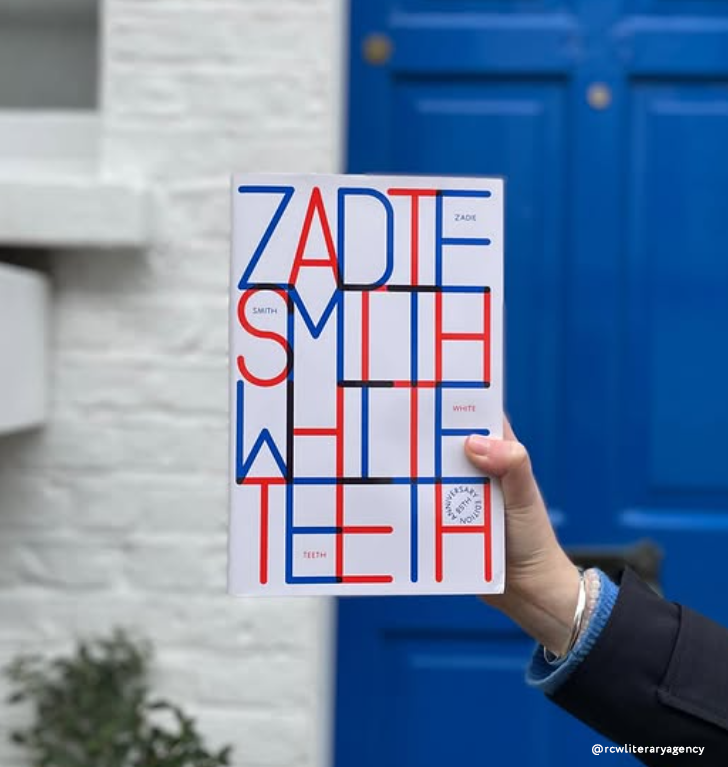 ZADIE
ZADIE
SMITH
SMITH
WHITE
WHITE
TEETH
TEETH
ANNIVERSARY EDITION
85TH
@rcwliteraryagency